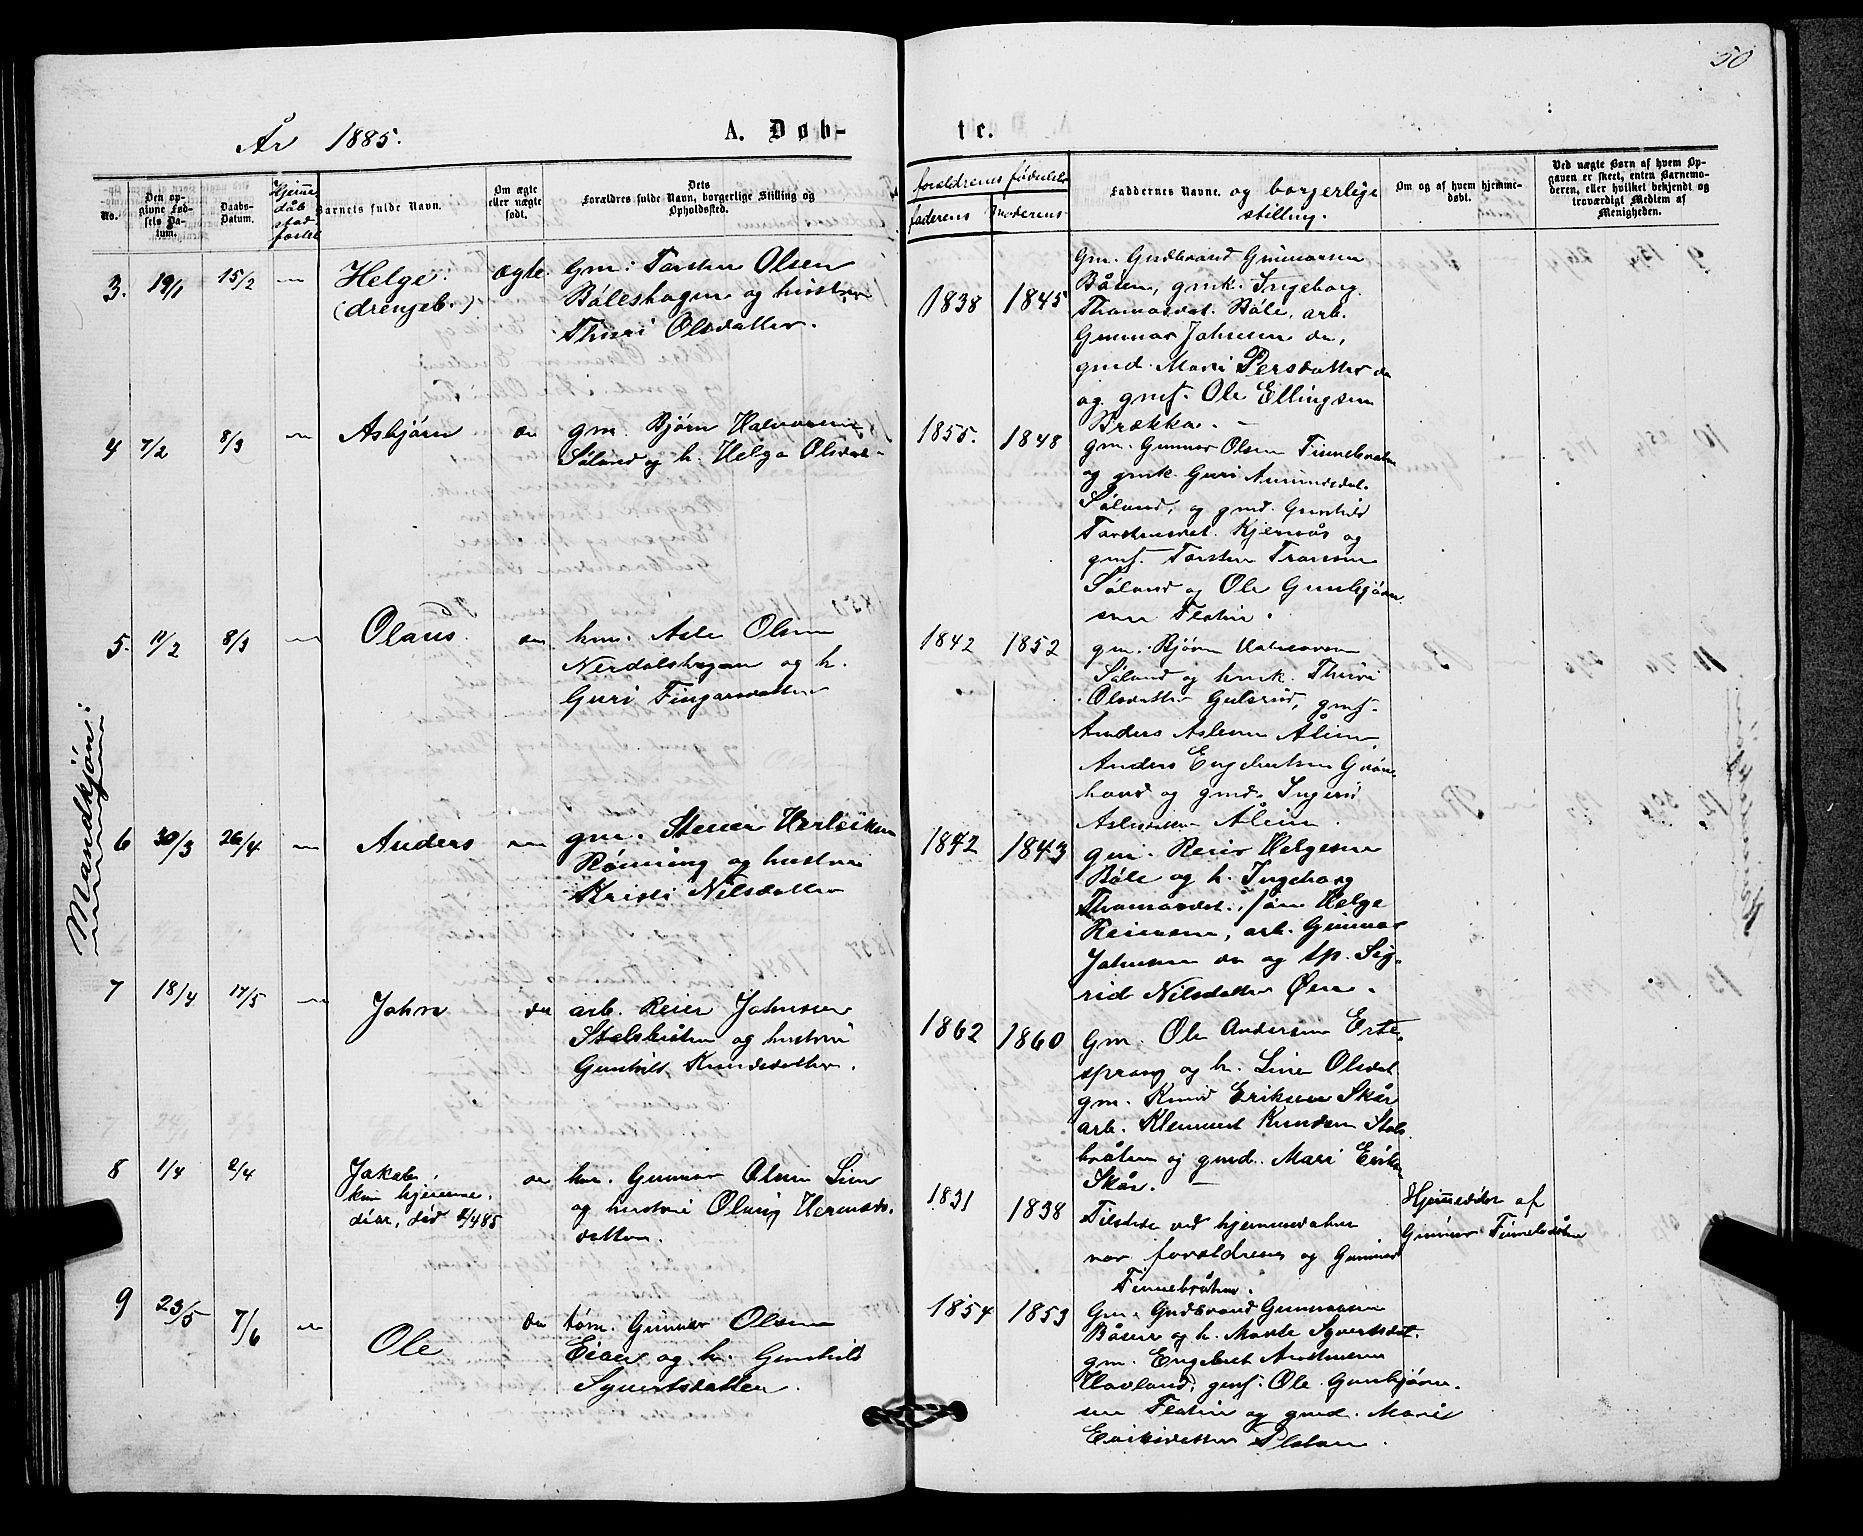 50
År 1885.
A. Døb-
te.
No.
Den op-
givne Fød-
sels Da-
tum.
Daabs-
Datum.
Hjemme
dåb
stad
fæstet
Barnets fulde Navn.
Om ægte
eller nægte
født.
Dets
Forældres fulde Navn, borgerlige Stilling og
Opholdssted.
forældrenes fødselsår
faderens
moderens
Faddernes Navne. og borgerlige
stilling.
Om og af hvem hjemme-
døbt.
Ved nægte Børn af hvem Op-
gaven er skeet, enten Barnemo-
deren, eller hvilket bekjendt og
troværdigt Medlem af
Menigheden.
Mandkjøn:
3. 19/1 15/2 — Helge
(drengeb.)
ægte.
Gm: Torsten Olsen
Båleshagen og hustru
Thuri Olsdatter.
1838 1845
Gm. Gudbrand Gunnarsen
Båsen, gmk. Ingeborg
Thomasdat. Båle, arb.
Gunnar Johnsen do,
gmd. Mari Persdatter do
og gmf. Ole Ellingsen
Brække. —
4 7/2 8/3 — Asbjørn do
gm. Bjørn Halvorsen
Søland og h. Helga Olsdat-
1855. 1848
gm. Gunnar Olsen Finnebråten
og gmk. Guri Amundsdat.
Søland, og gmd. Gunhild
Torstensdat. Kjernås og
gmf. Torsten Tronsen
Søland og Ole Gunbjørn
sen Flatin.
5. 11/2 8/3 — Olaus. do
hm. Asle Olsen
Nerdalshagen og h.
Guri Fingarsdatter
1842 1852
gm. Bjørn Halvorsen
Søland og hmk. Thuri
Olsdatter Gulsrud, gmf.
Anders Aslesen Ålien,
Anders Engebretsen Grøn-
hovd og gmd. Ingerid
Aslesdatter Ålien.
6 30/3 26/4 — Anders do
gm. Steiner Herleiksen
Rønning og hustru
Kristi Nilsdatter
1842 1843
gm. Reier Helgesen
Båle og h. Ingeborg
Thomasdat., søn Helge
Reiersen, arb. Gunnar
Johnsen do og tp. Sig-
rid Nilsdatter Øen.
7 18/4 17/5 — John do
arb. Reier Johnsen
Stolsbråten og hustru
Gunhild Knudsdatter.
1862 1860
Gm. Ole Andersen Erte-
sprang og h. Line Olsdat
gm. Knud Eriksen Skår
arb. Klemmet Knudsen Stols
bråten og gmd. Mari Eriksd
Skår. —
8 1/4 2/4
Jakob,
kun hjemme-
døbt, død 2/4 85
do
hm. Gunnar Olsen Lien
og hustru Olaug Hermods-
datter.
1831 1838
Tilstede ved hjemmedåben
var forældrene og Gunnar
Finnebråten.
Hjemmedøbt af
Gunnar Finnebråten
9 23/5 7/6 — Ole do
tøm. Gunnar Olsen
Eiaer og h. Gunhild
Syvertsdatter.
1854 1853
Gm. Gudbrand Gunnarsen
Båsen og h. Marte Syvertsdat.
gm. Engebret Arstensen
Havland, gmf. Ole Gunbjørn-
sen Flatin og gmd. Mari
Eriksdatter Platen.